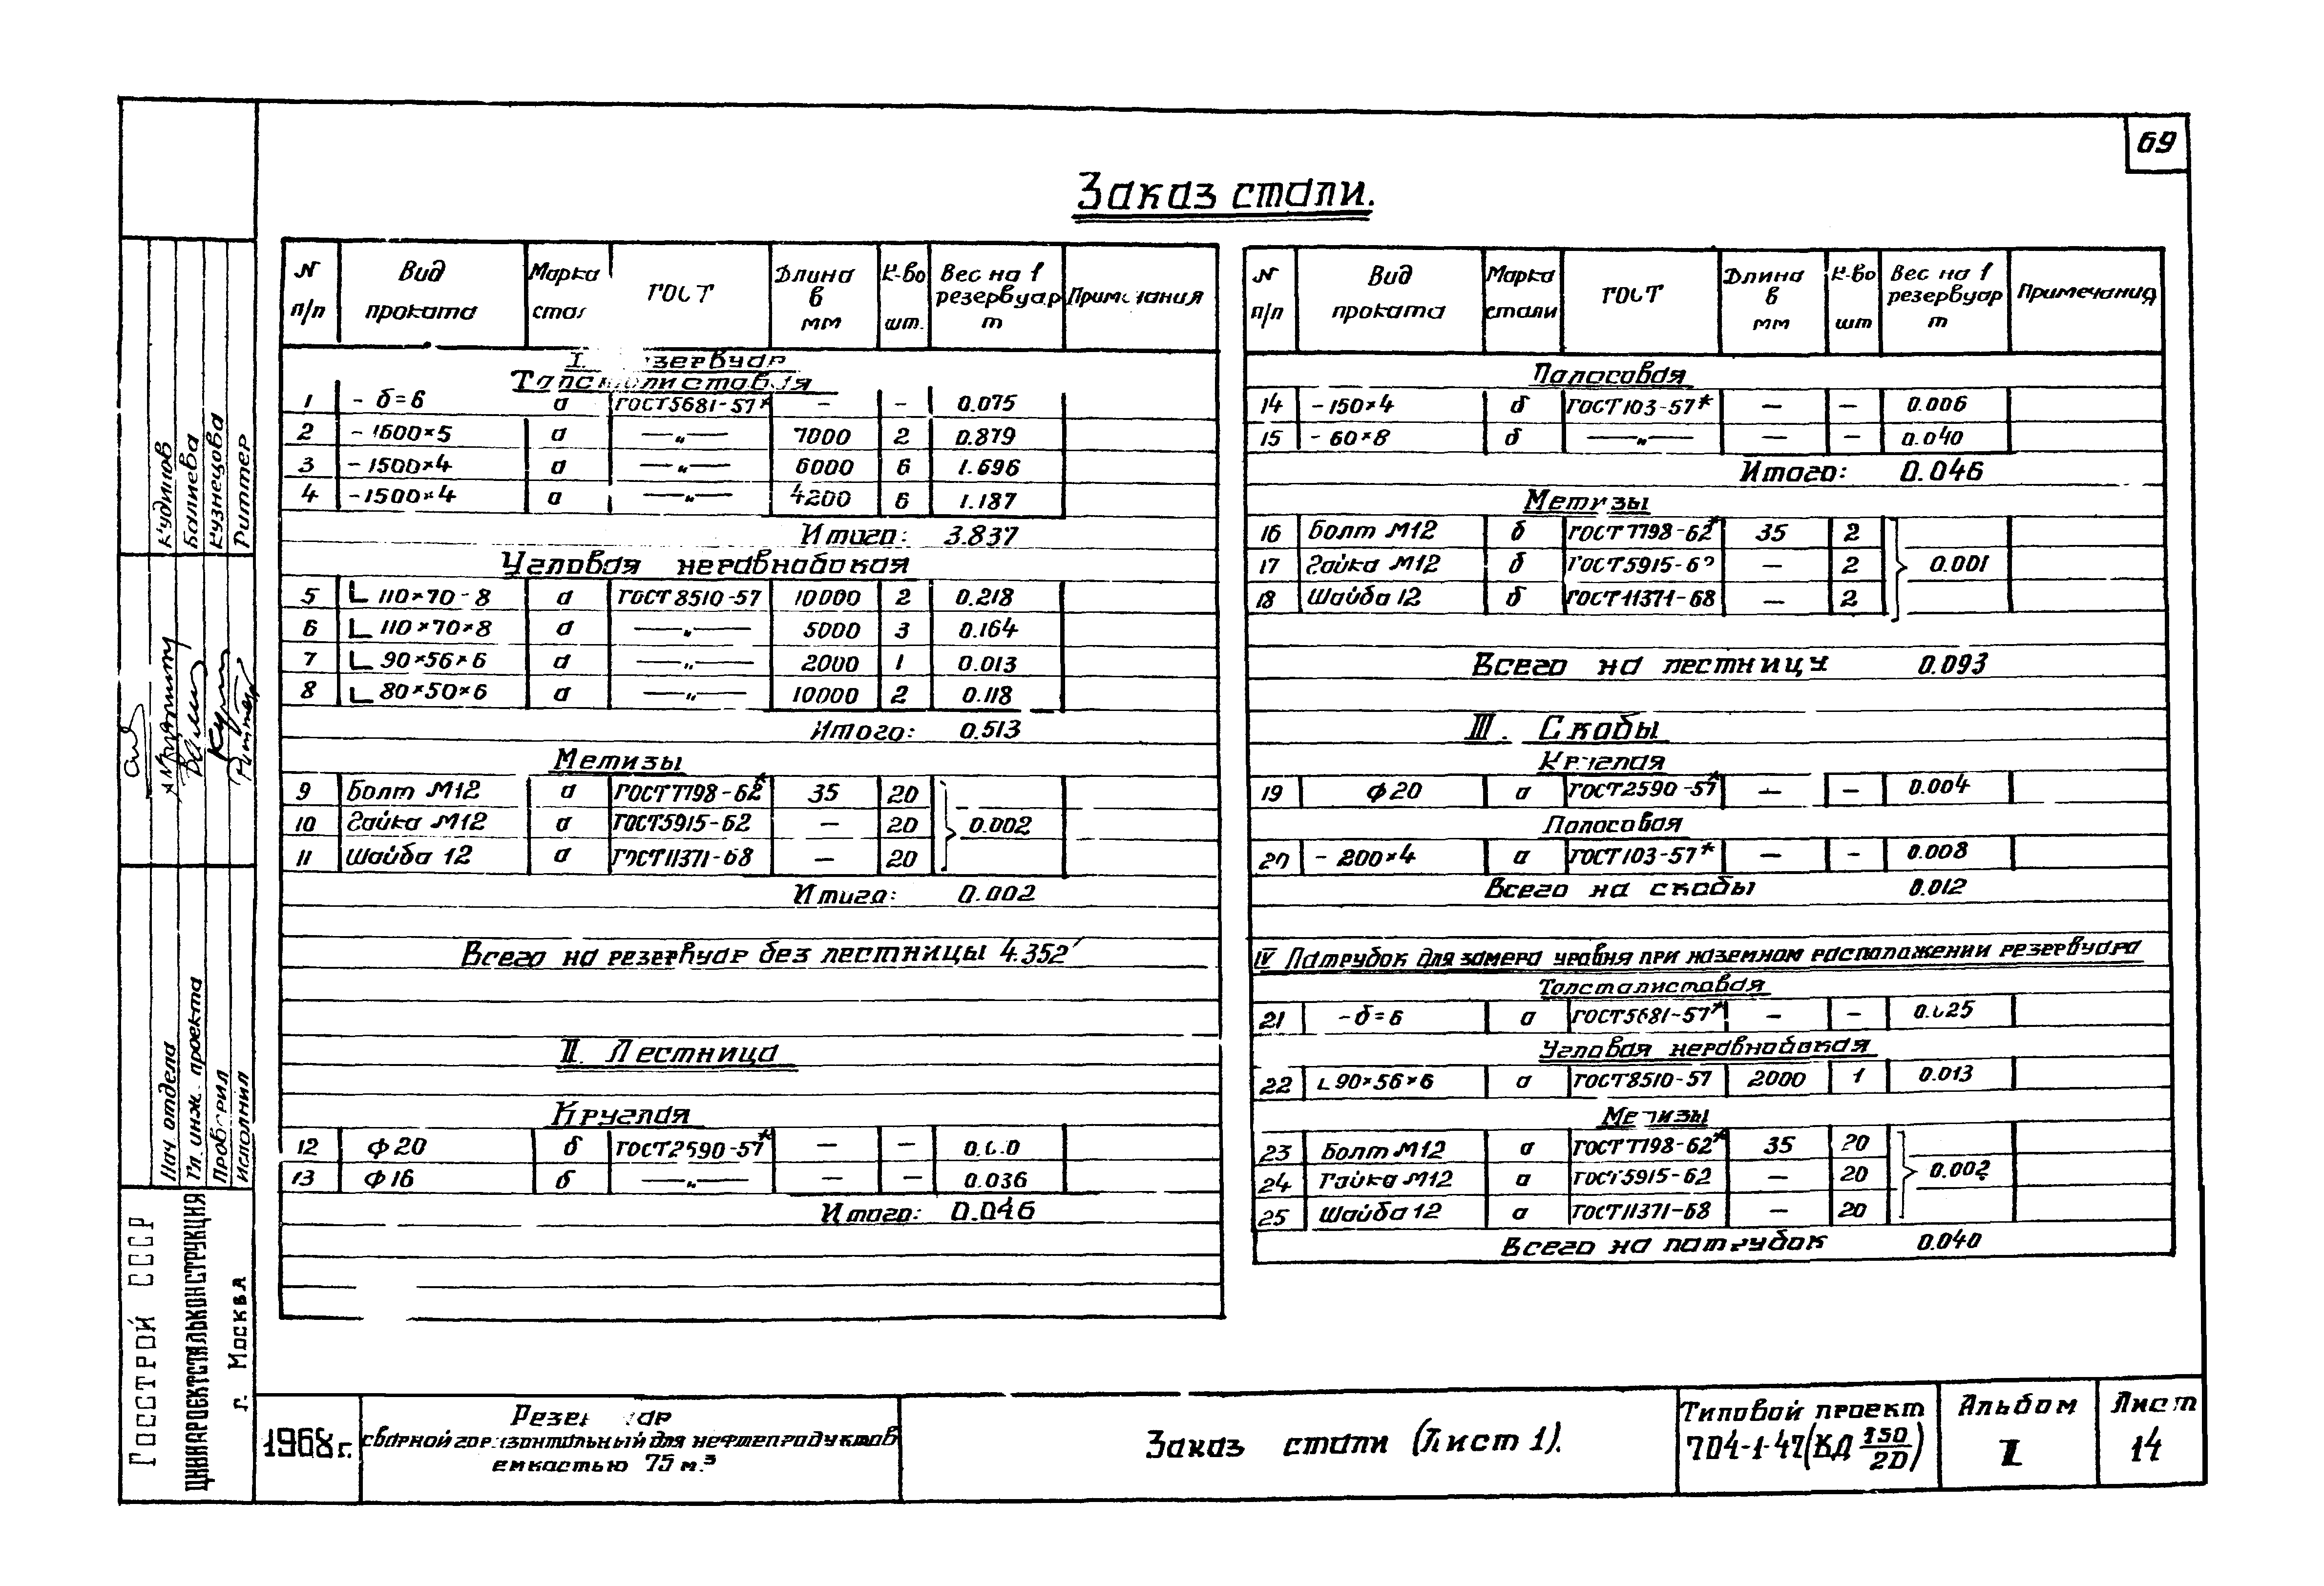 69
Заказ стали.
N п/п | Вид проката | Марка | ГОСТ | Длина в мм | К-во шт. | Вес на 1 резервуар т | Примечания
I.
Толстолистовая
1 | - δ=6 | а | ГОСТ 5681-57* | — | - | 0.075
2 | - 1600×5 | а | —„— | 7000 | 2 | 0.879
3 | - 1500×4 | а | —„— | 6000 | 6 | 1.696
4 | - 1500×4 | а | —„— | 4200 | 6 | 1.187
Итого: 3.837
Угловая неравнабокая
5 | L 110×70-8 | а | ГОСТ 8510-57 | 10000 | 2 | 0.218
6 | L 110×70×8 | а | —„— | 5000 | 3 | 0.164
7 | L 90×56×6 | а | —„— | 2000 | 1 | 0.013
8 | L 80×50×6 | а | —„— | 10000 | 2 | 0.118
Итого: 0.513
Метизы
9 | Болт М12 | а | ГОСТ 7798-62* | 35 | 20
10 | Гайка М12 | а | ГОСТ 5915-62 | — | 20 | 0.002
11 | Шайба 12 | а | ГОСТ 11371-68 | — | 20
Итого: 0.002
Всего на резервуар без лестницы 4.352
II. Лестница
Круглая
12 | ф 20 | б | ГОСТ 2590-57* | — | —
13 | ф 16 | б | —„— | — | — | 0.036
Итого: 0.046
N п/п | Вид проката | Марка стали | ГОСТ | Длина в мм | К-во шт | Вес на 1 резервуар т | Примечания
Полосовая
14 | - 150×4 | б | ГОСТ 103-57* | — | — | 0.006
15 | - 60×8 | б | —„— | — | — | 0.040
Итого: 0.046
Метизы
16 | Болт М12 | б | ГОСТ 7798-62* | 35 | 2
17 | Гайка М12 | б | ГОСТ 5915-6 | — | 2 | 0.001
18 | Шайба 12 | б | ГОСТ 11371-68 | — | 2
Всего на лестницу 0.093
III. Скобы
Круглая
19 | ф 20 | а | ГОСТ 2590-57* | — | — | 0.004
Полосовая
20 | - 200×4 | а | ГОСТ 103-57* | — | - | 0.008
Всего на скобы 0.012
IV Патрубок для замера уровня при наземном расположении резервуара
Толсталистовая
21 | - δ=6 | а | ГОСТ 5681-57* | — | - | 0.025
Угловая неравнобокая
22 | L 90×56×6 | а | ГОСТ 8510-57 | 2000 | 1 | 0.013
Метизы
23 | Болт М12 | а | ГОСТ 7798-62* | 35 | 20
24 | Гайка М12 | а | ГОСТ 5915-62 | — | 20 | 0.002
25 | Шайба 12 | а | ГОСТ 11371-68 | — | 20
Всего на патрубок 0.040
Кудинов
Балиева
Кузнецова
Риттер
Нач отдела
Гл. инж. проекта
Проверил
Исполнил
Госстрой СССР
ЦНИИПРОЕКТСТАЛЬКОНСТРУКЦИЯ
г. Москва
1968 г.
Резервуар
сварной горизонтальный для нефтепродуктов
емкостью 75 м.³
Заказ стали (Лист 1).
Типовой проект
704-1-47(КД 150/20)
Альбом
I
Лист
14